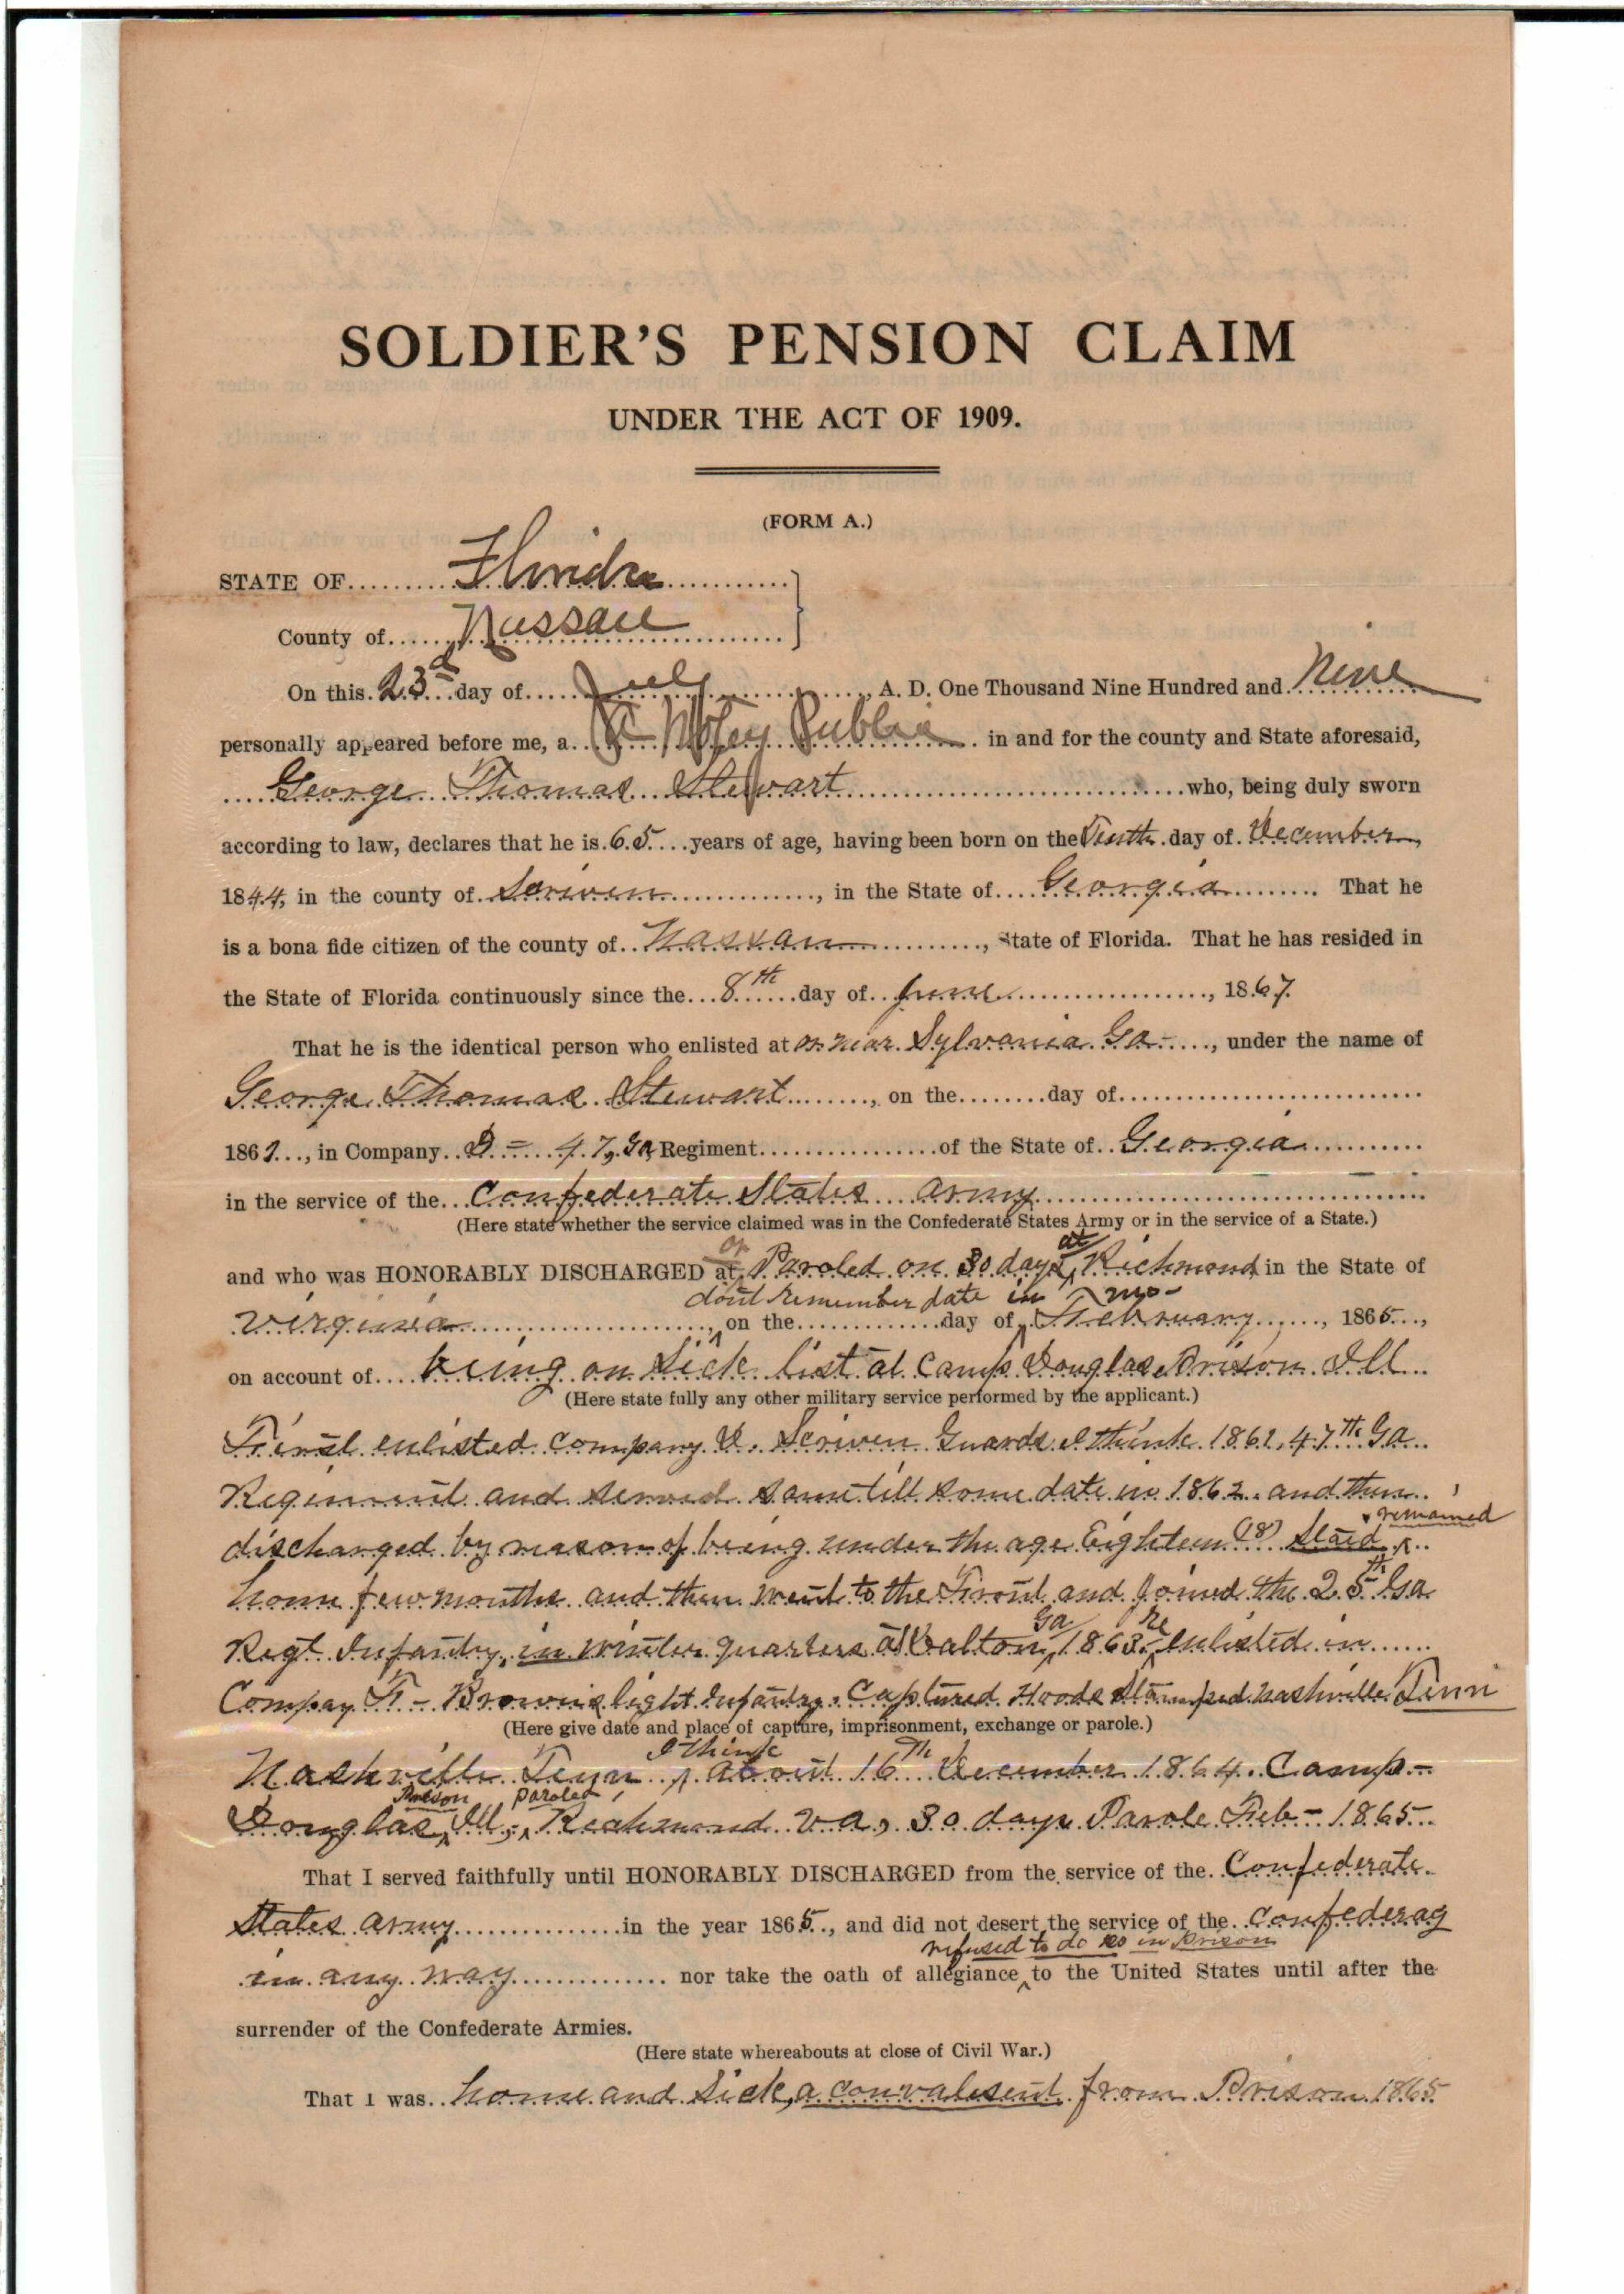 SOLDIER'S PENSION CLAIM
UNDER THE ACT OF 1909.
(FORM A.)
STATE OF Florida
County of Nassau
On this 23d day of July, A. D. One Thousand Nine Hundred and Nine
personally appeared before me, a Notary Public in and for the county and State aforesaid,
George Thomas Stewart who, being duly sworn
according to law, declares that he is 65 years of age, having been born on the Tenth day of December
1844, in the county of Scriven, in the State of Georgia. That he
is a bona fide citizen of the county of Nassau, State of Florida. That he has resided in
the State of Florida continuously since the 8th day of June, 1867.
That he is the identical person who enlisted at or near Sylvania Ga, under the name of
George Thomas Stewart, on the day of
1861, in Company D - 47, Ga Regiment of the State of Georgia
in the service of the Confederate States Army
(Here state whether the service claimed was in the Confederate States Army or in the service of a State.)
and who was HONORABLY DISCHARGED at or Paroled on 30 days at Richmond in the State of
dont remember date in mo-
Virginia, on the day of February, 1865,
on account of being on Sick list at Camp Douglas Prison Ill
(Here state fully any other military service performed by the applicant.)
First enlisted company D. Scriven Guards I think 1861, 47th Ga
Regiment and served same till some date in 1862. and then
discharged by reason of being under the age Eighteen (18) Staid remained
home few months and then went to the Front and joined the 25th Ga
Regt Infantry, in winter quarters at Dalton, Ga 1863 - Re enlisted in
Compay F - Browns light Infantry. Captured Hoods Stampeed Nashville Tenn
(Here give date and place of capture, imprisonment, exchange or parole.)
Nashville Tenn I think about 16th December 1864. Camp-
Douglas, Prison Ill, paroled, Richmond Va, 30 days Parole Feb - 1865
That I served faithfully until HONORABLY DISCHARGED from the service of the Confederate
States Army in the year 1865, and did not desert the service of the Confederacy
refused to do so in Prison
in any way nor take the oath of allegiance to the United States until after the
surrender of the Confederate Armies.
(Here state whereabouts at close of Civil War.)
That I was home and Sick, a convalesent from Prison 1865